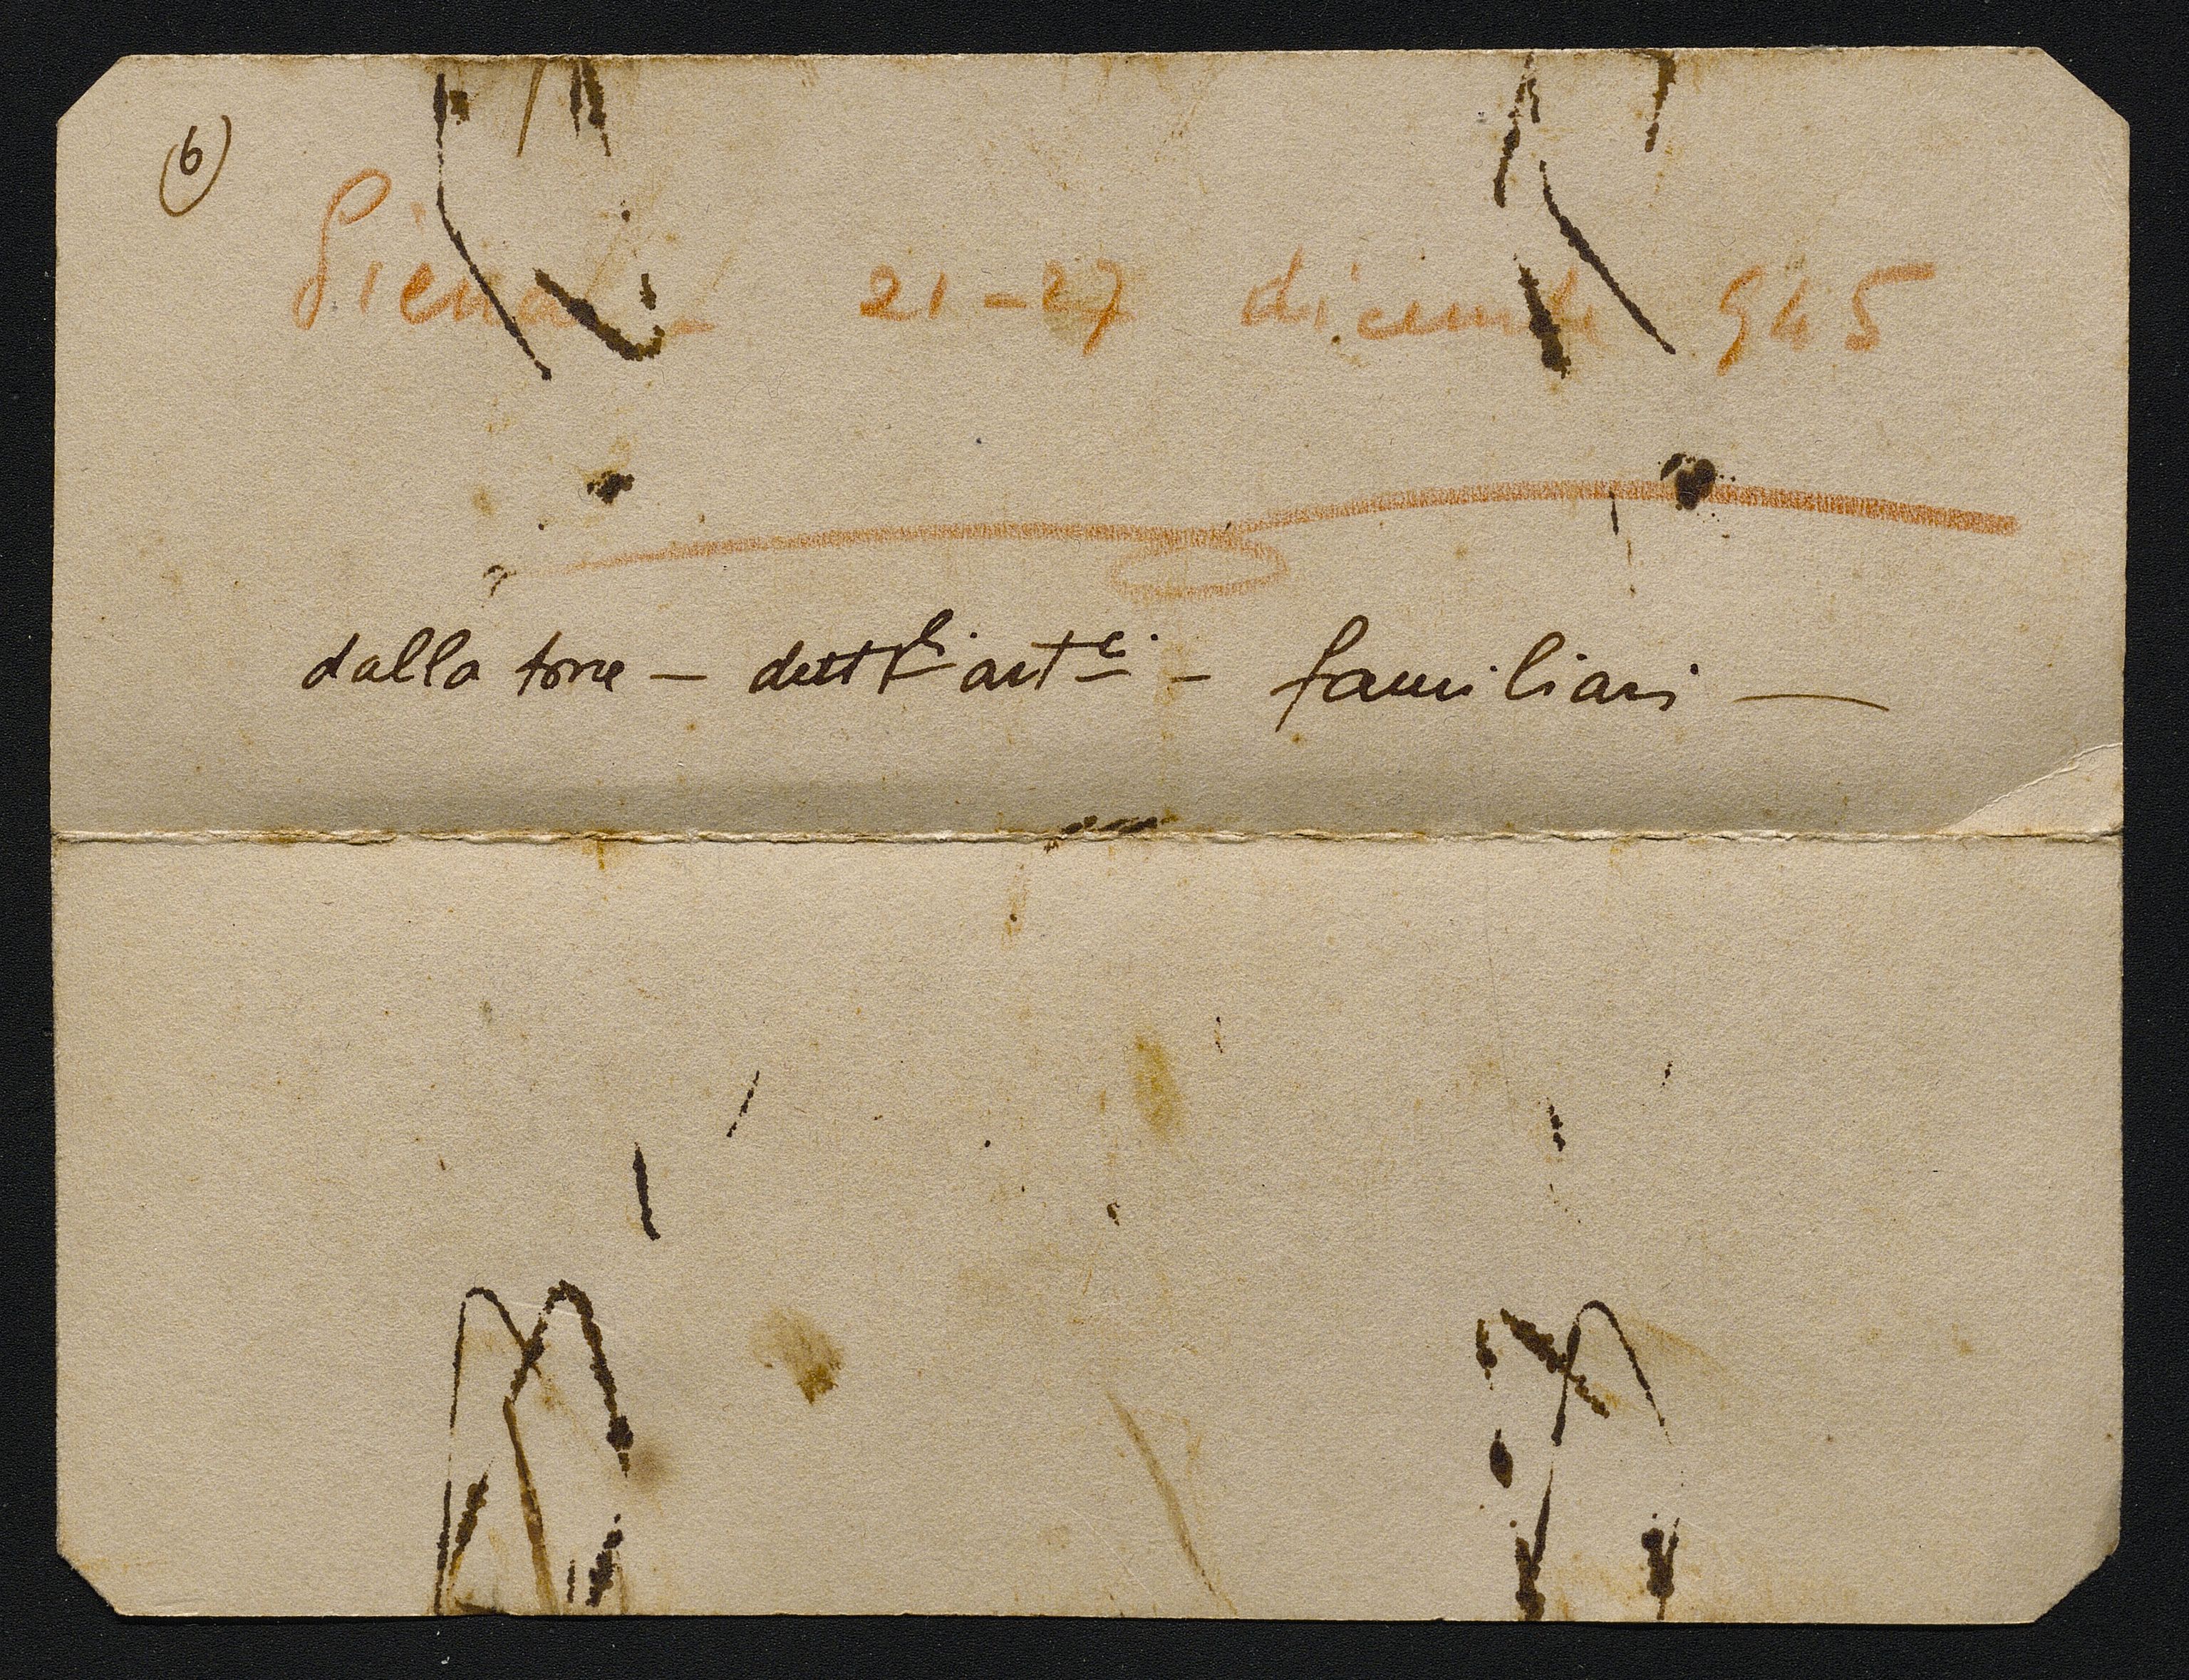 (6)
Siena - 21-27 dicembre 945
dalla torre - dettli artci - familiari -